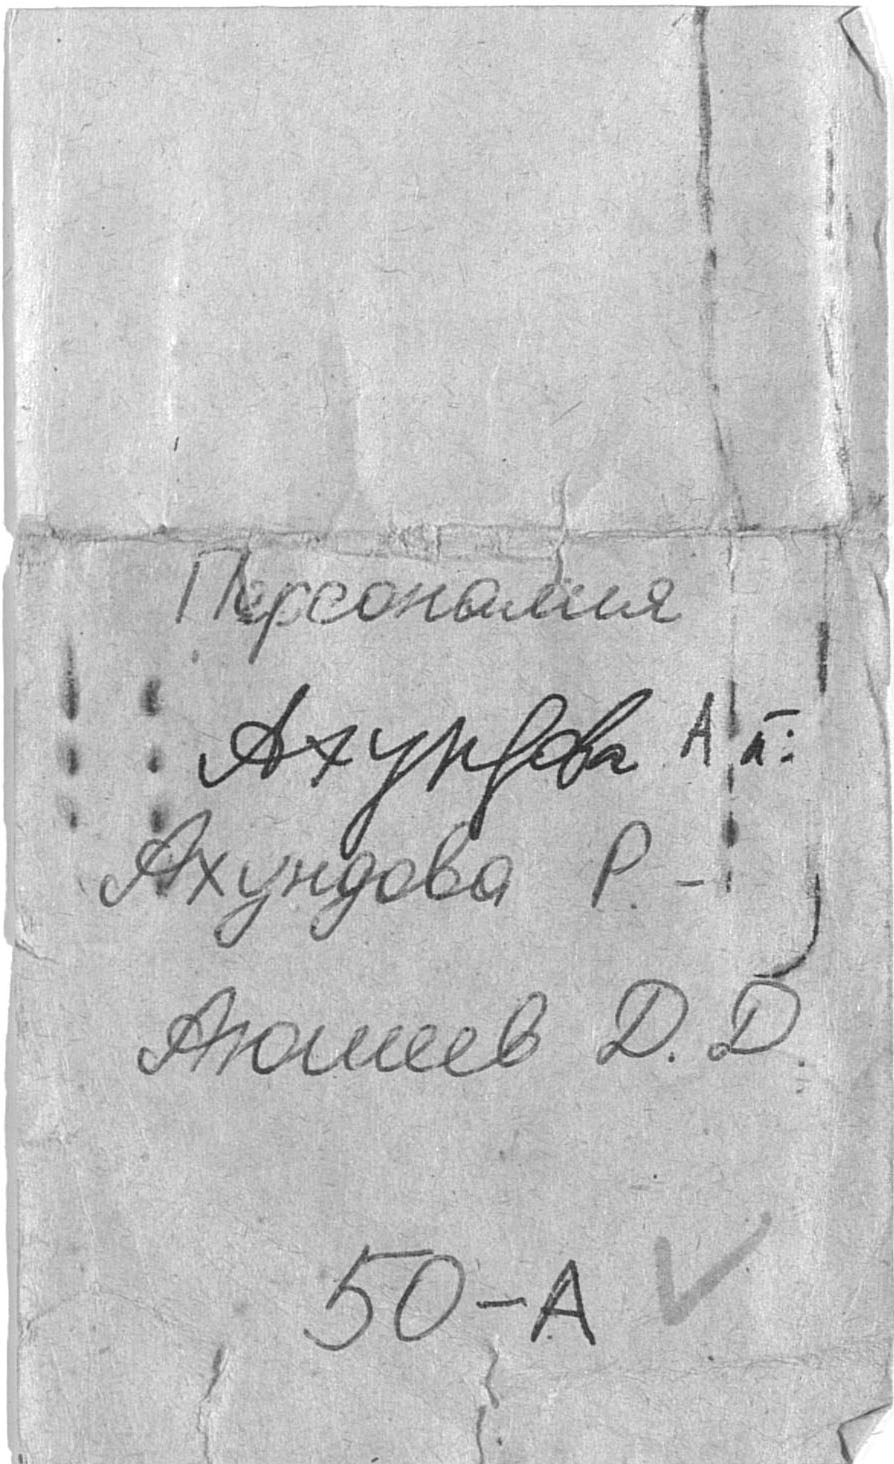 Персоналия
Ахундова А
Ахундова Р. -
Аюшеев Д. Д.
50-А